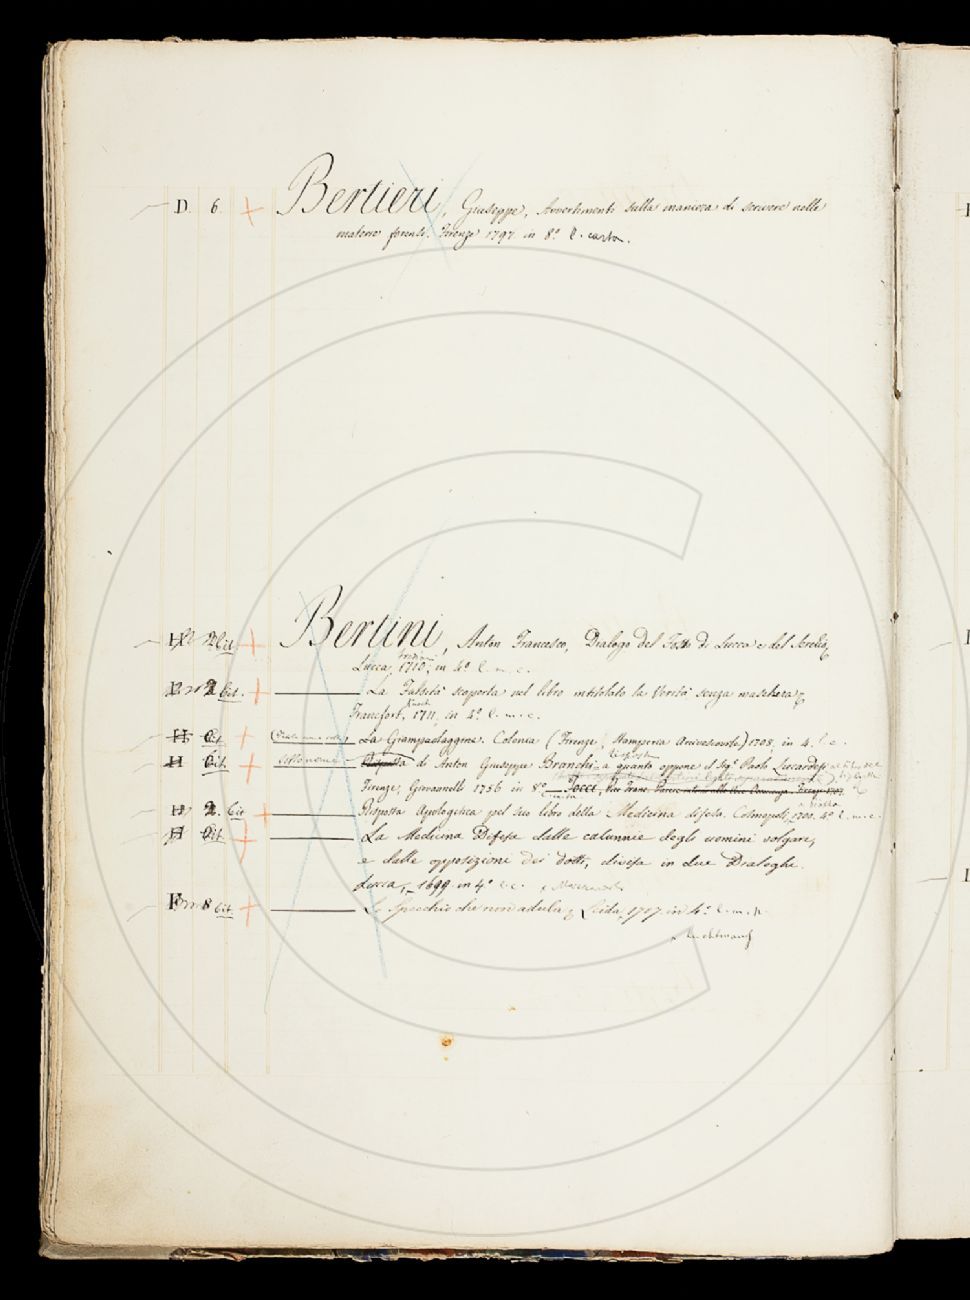 D. 6 Bertieri, Giuseppe, Avvertimenti sulla maniera di scrivere nelle
materie forensi. Firenze 1797. in 8.° l. carta.
H 2 Cit. Bertini, Anton Francesco, Dialogo del Fosso di Lucca e del Serchio
Lucca, 1710. in 4.° l. m. c.
2 Cit. La Falsità scoperta nel libro intitolato la Verità senza maschera
Francfort, 1711, in 4.° l. m. c.
H Cit. La Giampaolaggine. Colonia (Firenze, Stamperia Arcivescovile) 1708. in 4. l. c.
H Cit. Risposta di Anton Giuseppe Branchi a quanto oppone il Sig.r Paolo Lucardesi
Firenze, Giovannelli 1756 in 8.°
H 2. Cit Risposta Apologetica pel suo libro della Medicina difesa. Cosmopoli, 1700. 4.° l. m. c.
H Cit La Medicina Difesa dalle calunnie degli uomini volgari,
e dalle opposizioni dei dotti, divisa in due Dialoghi.
Lucca, 1699 in 4.° l. c.
F 8 Cit Lo Specchio che non adula, Leida, 1707. in 4.° l. m. p.